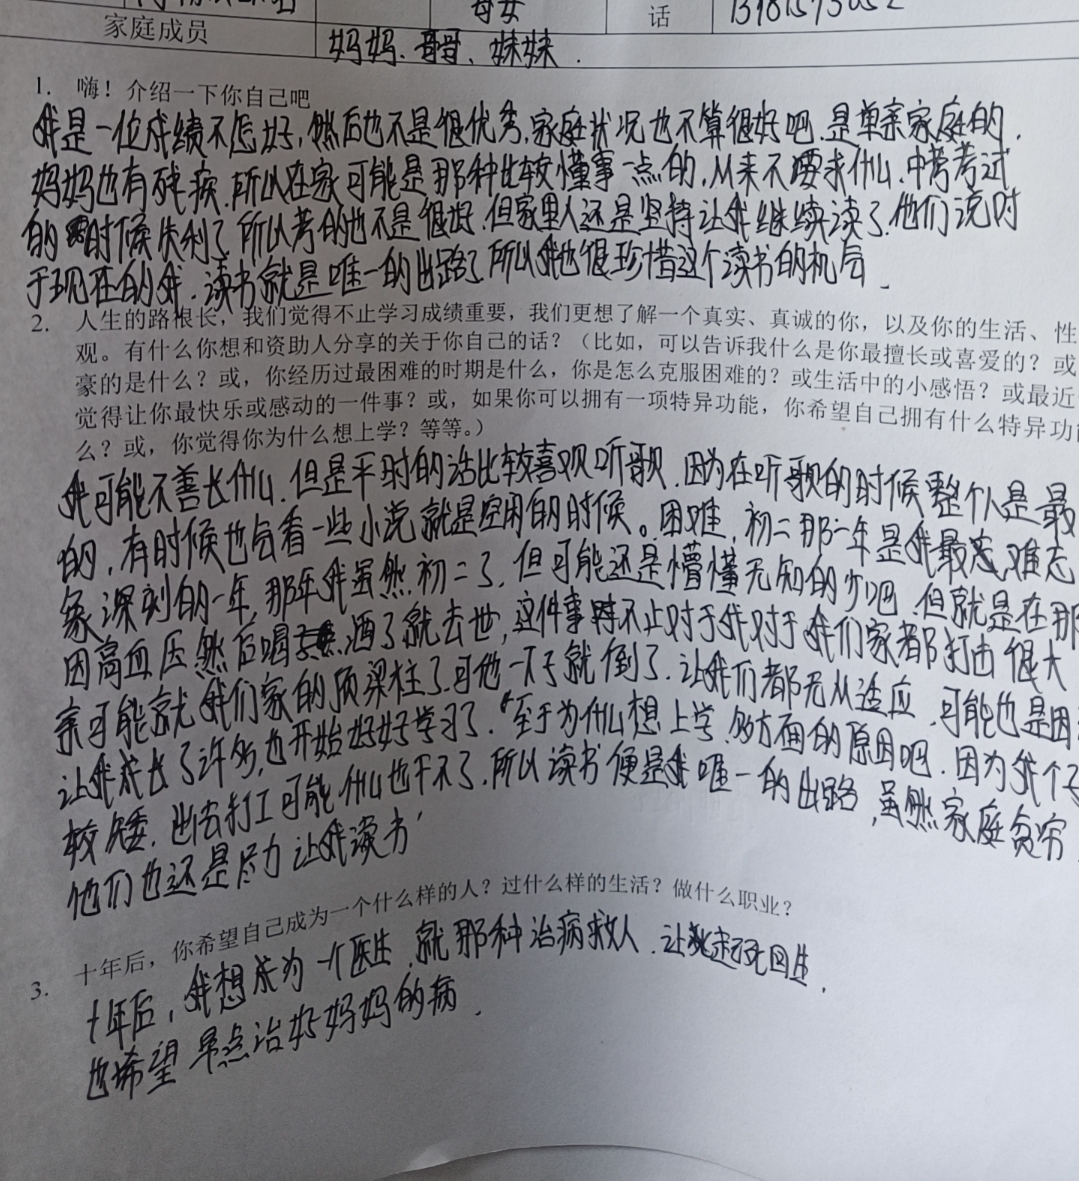 母女 话
家庭成员 妈妈、哥哥、妹妹.
1. 嗨！介绍一下你自己吧
我是一位成绩不怎好，然后也不是很优秀，家庭状况也不算很好吧.是单亲家庭的.
妈妈也有残疾.所以在家可能是那种比较懂事一点的，从来不要求什么.中考考试
的时候失利了所以考的也不是很好.但家里人还是坚持让我继续读了.他们说对
于现在的我.读书就是唯一的出路了所以我也很珍惜这个读书的机会.
2. 人生的路很长，我们觉得不止学习成绩重要，我们更想了解一个真实、真诚的你，以及你的生活、性
观。有什么你想和资助人分享的关于你自己的话？（比如，可以告诉我什么是你最擅长或喜爱的？或
豪的是什么？或，你经历过最困难的时期是什么，你是怎么克服困难的？或生活中的小感悟？或最近
觉得让你最快乐或感动的一件事？或，如果你可以拥有一项特异功能，你希望自己拥有什么特异功
么？或，你觉得你为什么想上学？等等。）
我可能不善长什么.但是平时的话比较喜欢听歌.因为在听歌的时候整个人是最
的，有时候也会看一些小说就是空闲的时候。困难，初二那一年是我最 难忘
象深刻的一年，那年我虽然初二了，但可能还是懵懂无知的 吧.但就是在那
因高血压然后喝 酒了就去世，这件事 不止对于我对于我们家都打击很大
亲可能就我们家的顶梁柱了.可他一下子就倒了.让我们都无从适应.可能也是因
让我成长了许多，也开始好好学习了.“至于为什么想上学.多方面的原因吧.因为我个子
较矮.出去打工可能什么也干不了.所以读书便是我唯一的出路，虽然家庭贫穷
他们也还是尽力让我读书’
3. 十年后，你希望自己成为一个什么样的人？过什么样的生活？做什么职业？
十年后，我想成为一个医生.就那种治病救人.让 起死回生.
也希望早点治好妈妈的病.